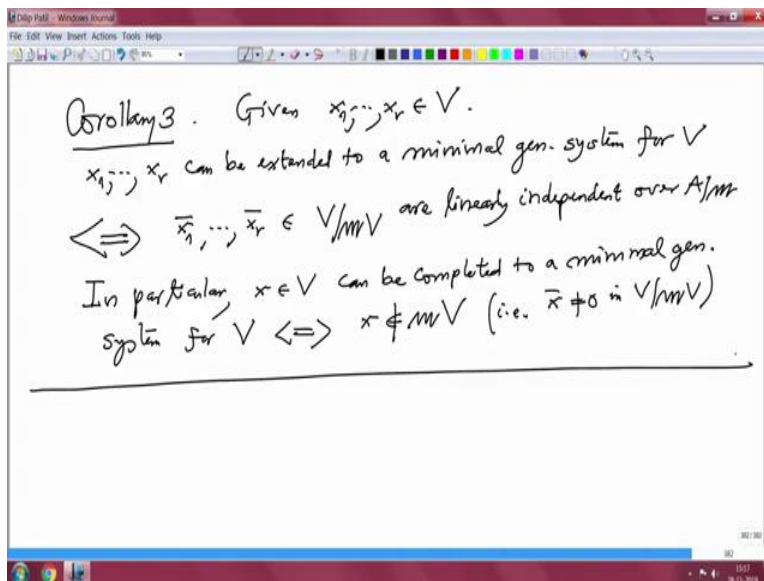 Dilip Patil - Windows Journal
File Edit View Insert Actions Tools Help
Corollary 3. Given x₁,...,xᵣ ∈ V.
x₁,...,xᵣ can be extended to a minimal gen. system for V
⟺ x̄₁,...,x̄ᵣ ∈ V/𝔪V are linearly independent over A/𝔪
In particular, x ∈ V can be completed to a minimal gen.
system for V ⟺ x ∉ 𝔪V (i.e. x̄ ≠ 0 in V/𝔪V)
382/382
182
15:57